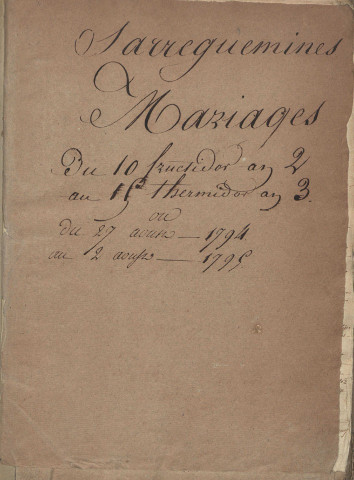 Sarreguemines
Mariages
Du 10 fructidor an 2
au 15 thermidor an 3.
ou
du 27 aoust — 1794
au 2 aoust — 1795